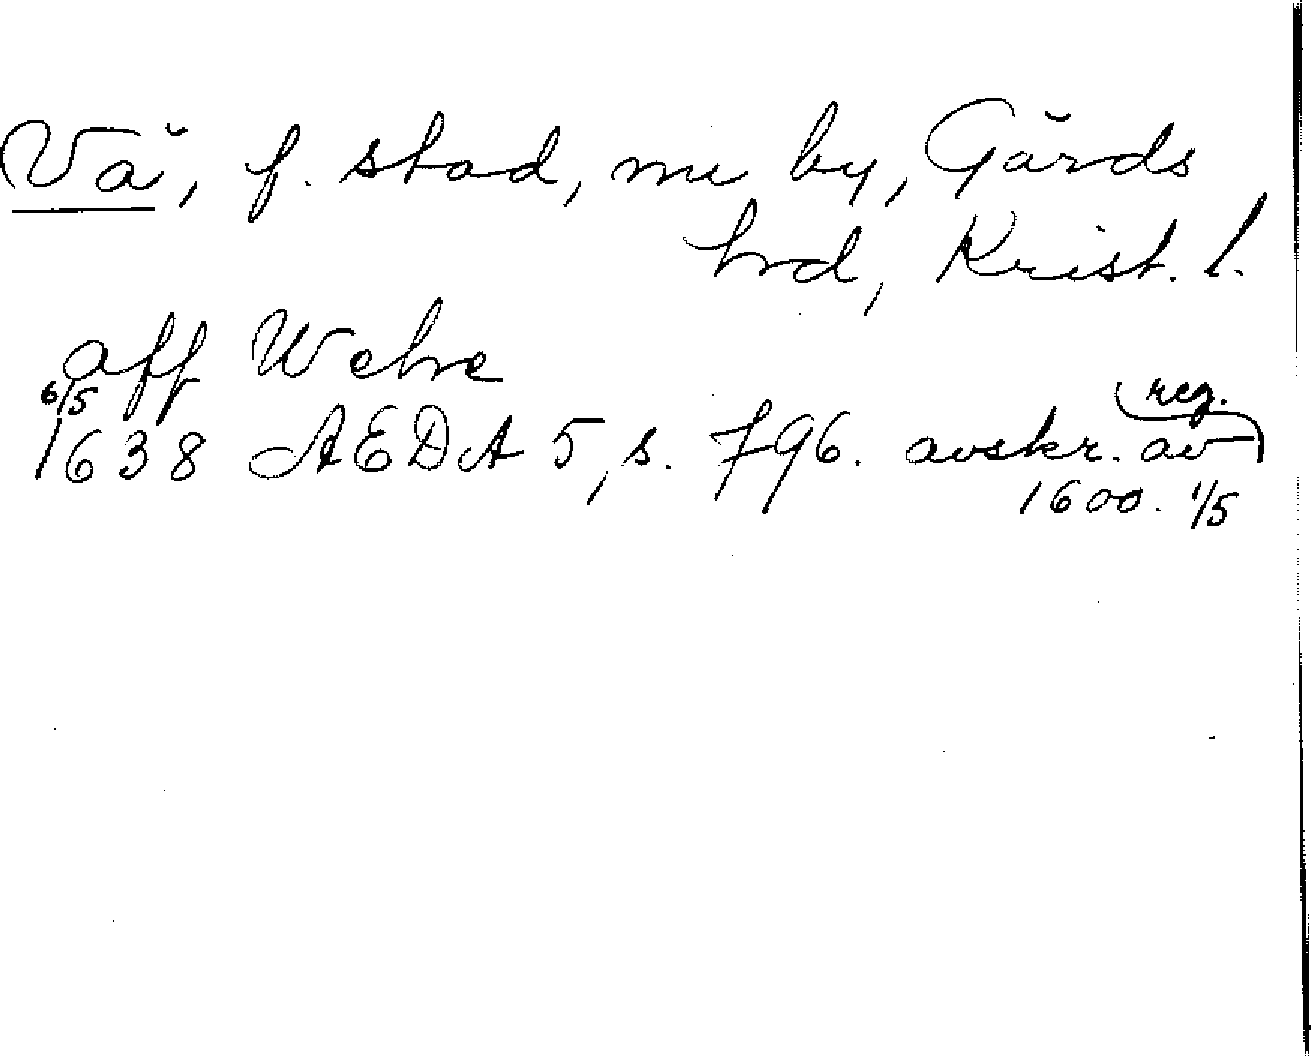 Vä, f. stad, nu by, Gärds
hrd, Krist. l.
aff Wehe
6/5 1638 AEDA 5, s. 796. avskr. av reg.
1600. 1/5